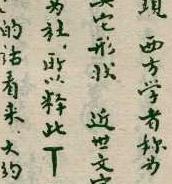 現　西方学者称为
其它形状　近世文字
为社，所以释此丅
的话看来，大约